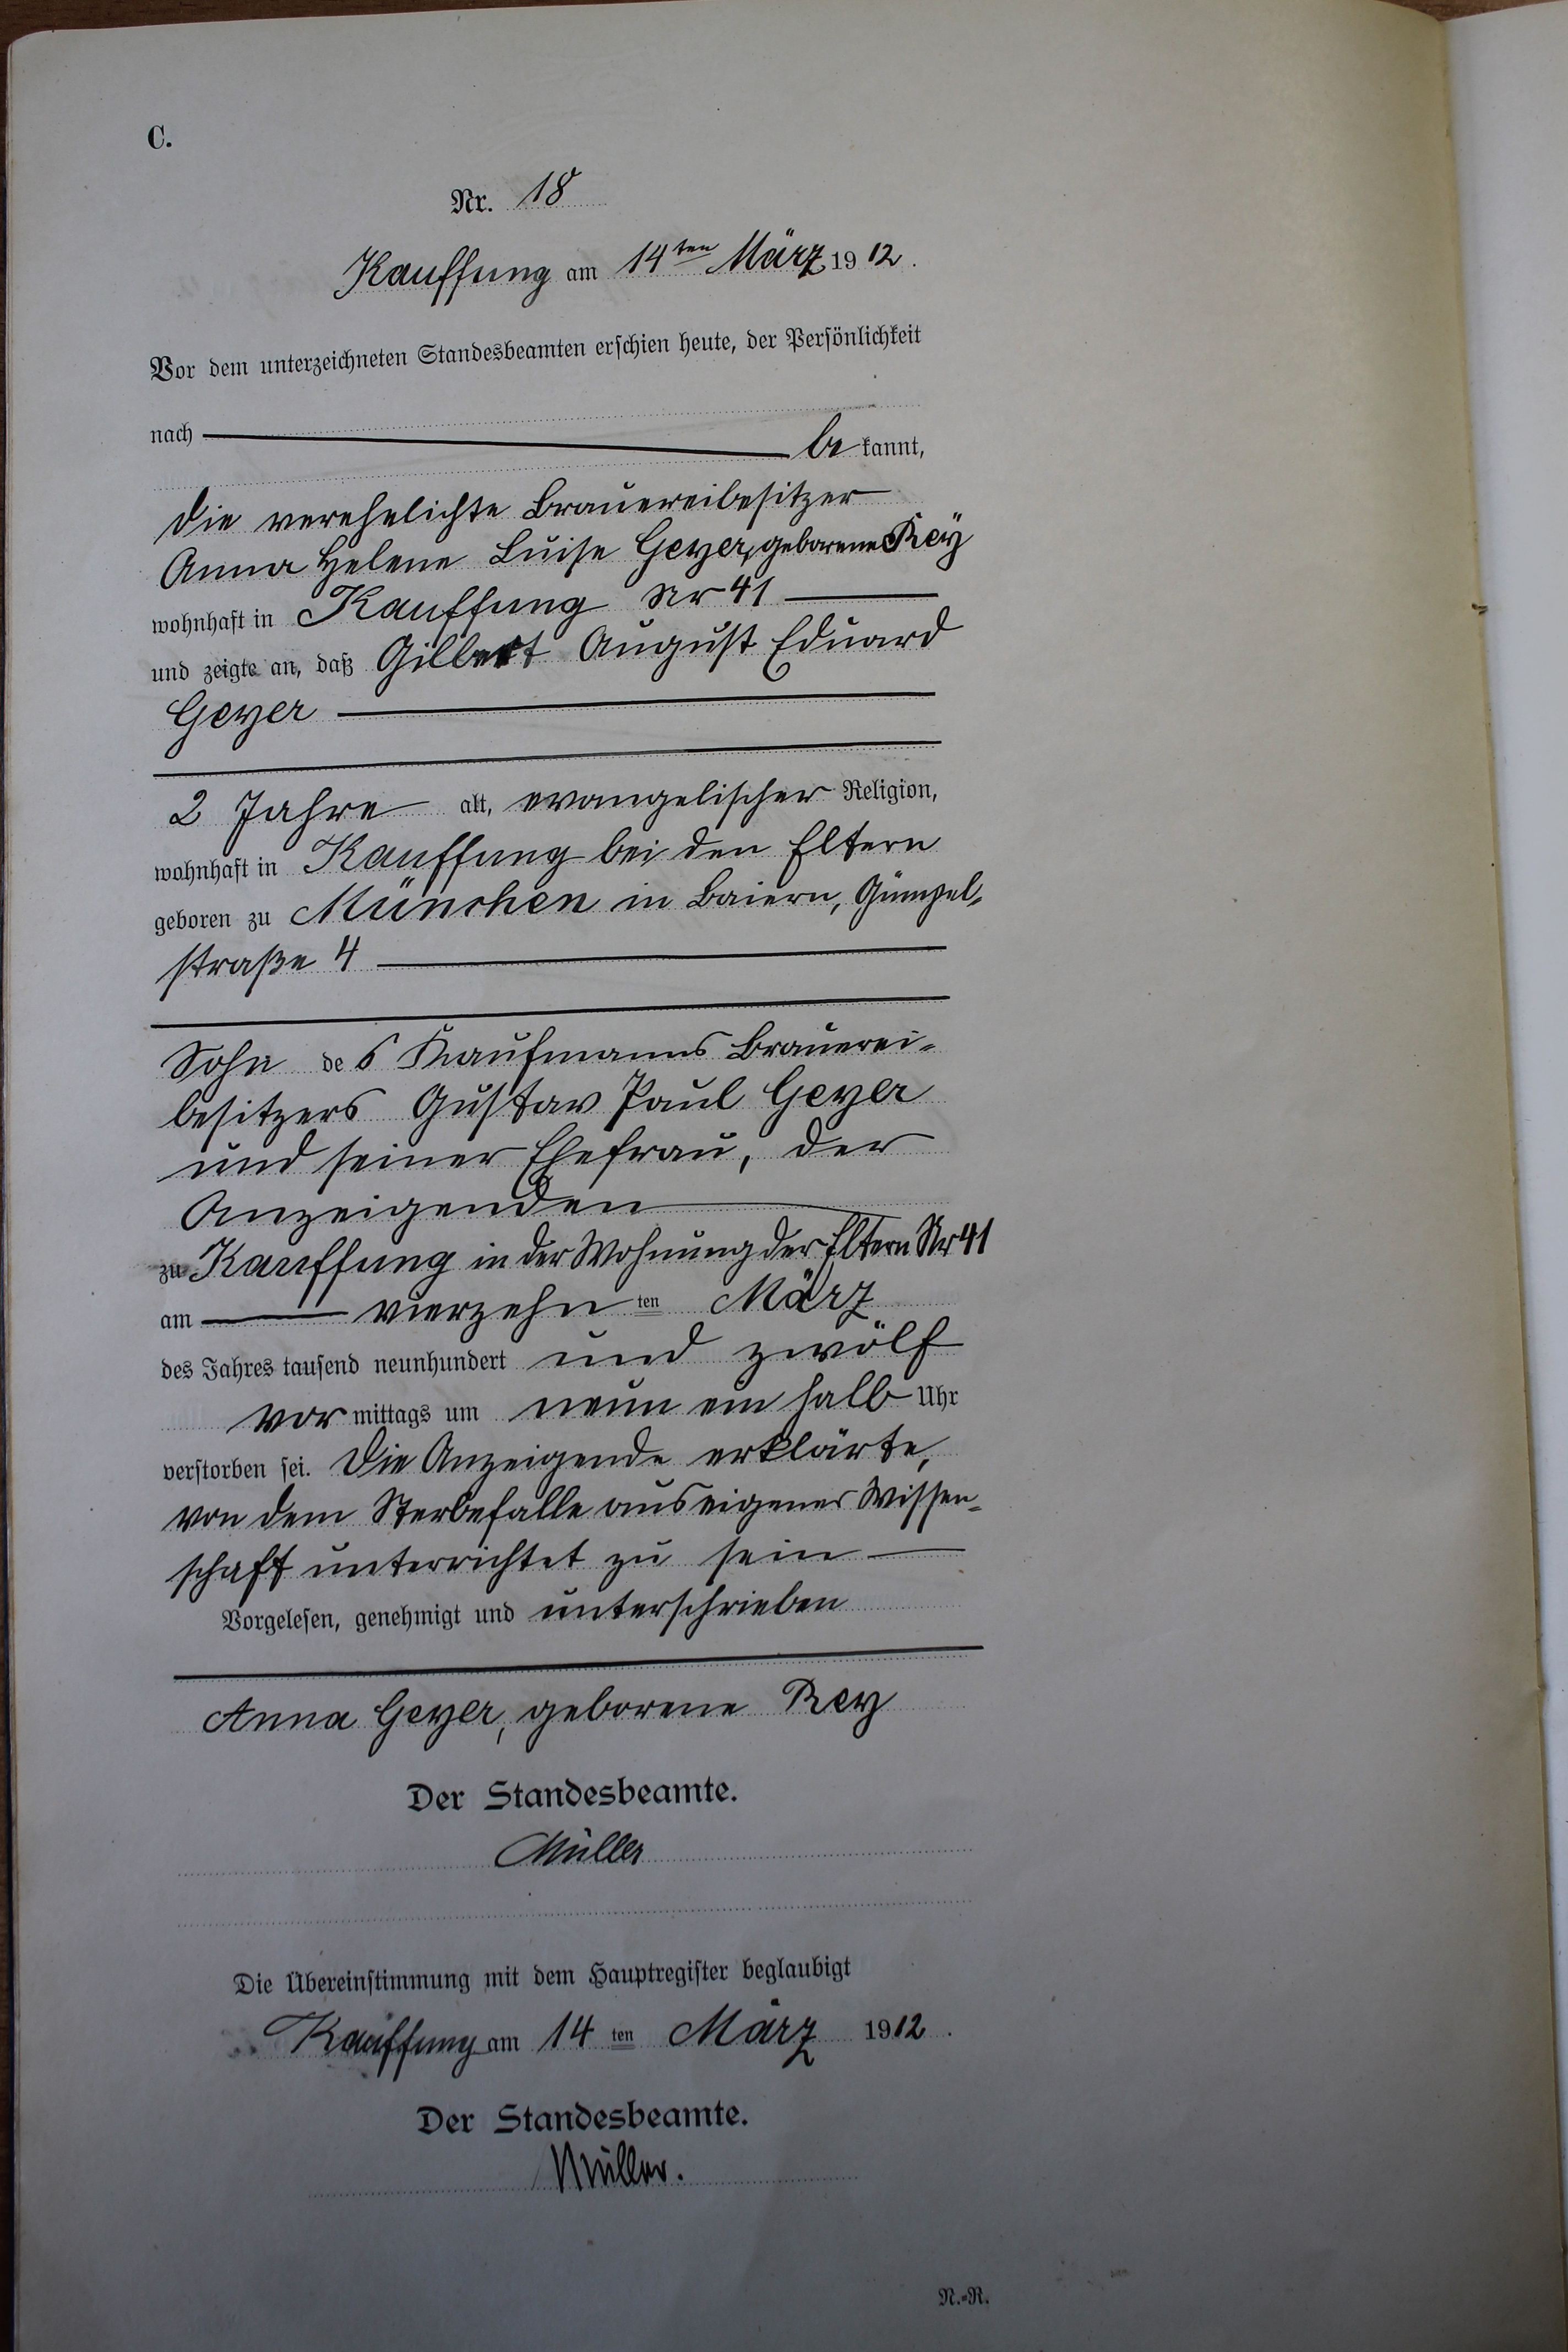 C.
Nr. 18
Kauffung am 14ten März 1912.
Vor dem unterzeichneten Standesbeamten erschien heute, der Persönlichkeit
nach bekannt,
die verehelichte Brauereibesitzer
Anna Helene Luise Geyer, geborene Rey
wohnhaft in Kauffung Nr 41
und zeigte an, daß Gilbert August Eduard
Geyer
2 Jahre alt, evangelischer Religion,
wohnhaft in Kauffung bei den Eltern
geboren zu München in Baiern,
straße 4
Sohn des Kaufmanns Brauerei-
besitzers Gustav Paul Geyer
und seiner Ehefrau, der
Anzeigenden
zu Kauffung in der Wohnung der Eltern Nr 41
am vierzehn ten März
des Jahres tausend neunhundert und zwölf
vor mittags um neun ein halb Uhr
verstorben sei. Die Anzeigende erklärte,
von dem Sterbefalle aus eigener Wissen-
schaft unterrichtet zu sein
Vorgelesen, genehmigt und unterschrieben
Anna Geyer, geborene Rey
Der Standesbeamte.
Müller
Die Übereinstimmung mit dem Hauptregister beglaubigt
Kauffung am 14 ten März 1912.
Der Standesbeamte.
Müller.
N.=R.